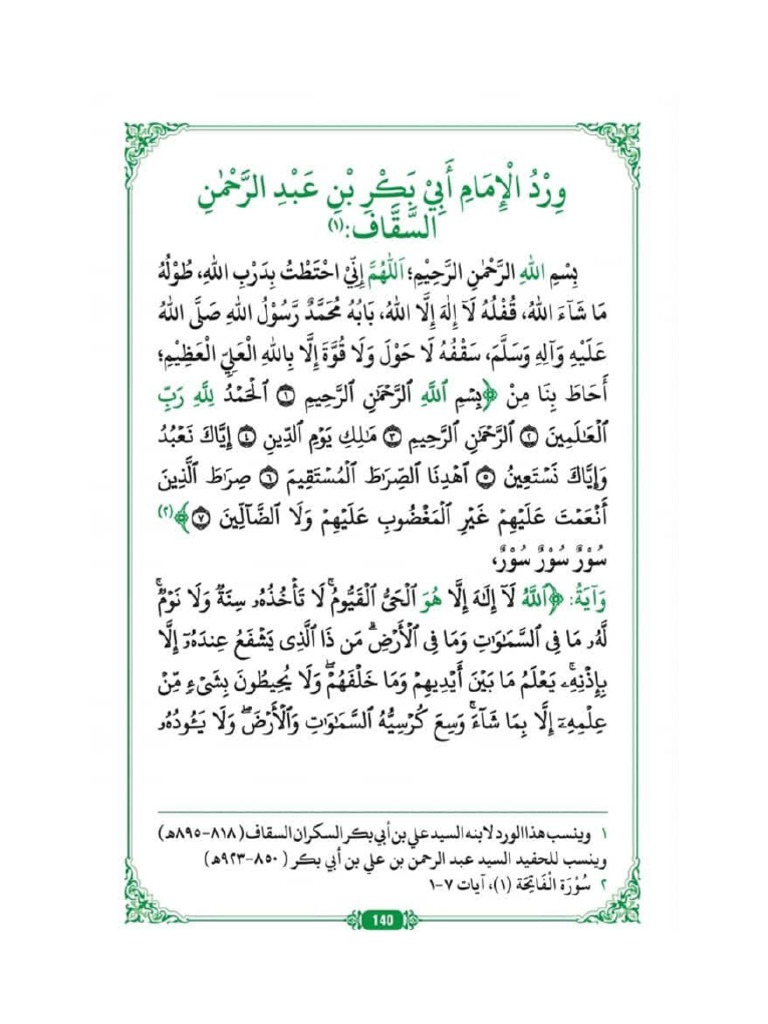 وِرْدُ الْإِمَامِ أَبِيْ بَكْرِ بْنِ عَبْدِ الرَّحْمٰنِ
السَّقَّافْ:(١)
بِسْمِ اللهِ الرَّحْمٰنِ الرَّحِيْمِ؛ اَللّٰهُمَّ إِنِّيْ احْتَطْتُ بِدَرْبِ اللهِ، طُوْلُهُ
مَا شَآءَ اللهُ، قُفْلُهُ لَآ إِلٰهَ إِلَّا اللهُ، بَابُهُ مُحَمَّدٌ رَّسُوْلُ اللهِ صَلَّى اللهُ
عَلَيْهِ وَآلِهِ وَسَلَّمَ، سَقْفُهُ لَا حَوْلَ وَلَا قُوَّةَ إِلَّا بِاللهِ الْعَلِيِّ الْعَظِيْمِ؛
أَحَاطَ بِنَا مِنْ ﴿بِسْمِ ٱللَّهِ ٱلرَّحْمَٰنِ ٱلرَّحِيمِ ١ ٱلْحَمْدُ لِلَّهِ رَبِّ
ٱلْعَٰلَمِينَ ٢ ٱلرَّحْمَٰنِ ٱلرَّحِيمِ ٣ مَٰلِكِ يَوْمِ ٱلدِّينِ ٤ إِيَّاكَ نَعْبُدُ
وَإِيَّاكَ نَسْتَعِينُ ٥ ٱهْدِنَا ٱلصِّرَٰطَ ٱلْمُسْتَقِيمَ ٦ صِرَٰطَ ٱلَّذِينَ
أَنْعَمْتَ عَلَيْهِمْ غَيْرِ ٱلْمَغْضُوبِ عَلَيْهِمْ وَلَا ٱلضَّآلِّينَ ٧﴾(٢)
سُوْرٌ سُوْرٌ سُوْرٌ،
وَآيَةُ: ﴿ٱللَّهُ لَآ إِلَٰهَ إِلَّا هُوَ ٱلْحَىُّ ٱلْقَيُّومُ ۚ لَا تَأْخُذُهُۥ سِنَةٌ وَلَا نَوْمٌ ۚ
لَّهُۥ مَا فِى ٱلسَّمَٰوَٰتِ وَمَا فِى ٱلْأَرْضِ ۗ مَن ذَا ٱلَّذِى يَشْفَعُ عِندَهُۥٓ إِلَّا
بِإِذْنِهِۦ ۚ يَعْلَمُ مَا بَيْنَ أَيْدِيهِمْ وَمَا خَلْفَهُمْ ۖ وَلَا يُحِيطُونَ بِشَىْءٍ مِّنْ
عِلْمِهِۦٓ إِلَّا بِمَا شَآءَ ۚ وَسِعَ كُرْسِيُّهُ ٱلسَّمَٰوَٰتِ وَٱلْأَرْضَ ۖ وَلَا يَـُٔودُهُۥ
١ وينسب هذا الورد لابنه السيد علي بن أبي بكر السكران السقاف (٨١٨-٨٩٥هـ)
وينسب للحفيد السيد عبد الرحمن بن علي بن أبي بكر (٨٥٠-٩٢٣هـ)
٢ سُوْرَة الْفَاتِحَة (١)، آيات ٧-١
140